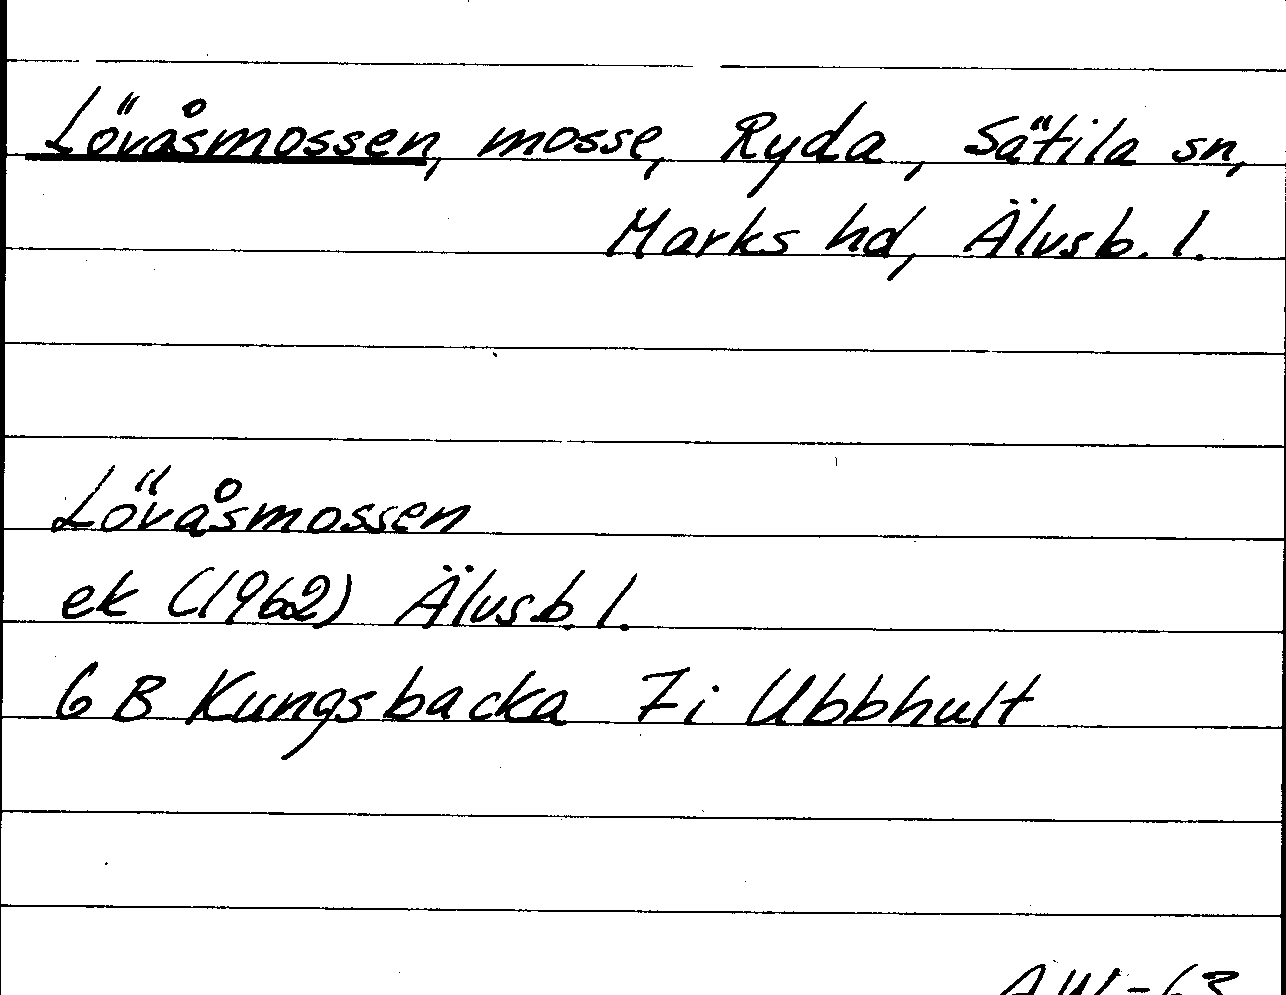 Lövåsmossen, mosse, Ryda, Sätila sn,
Marks hd, Älvsb. l.
Lövåsmossen
ek (1962) Älvsb. l.
6 B Kungsbacka 7i Ubbhult
AW-63